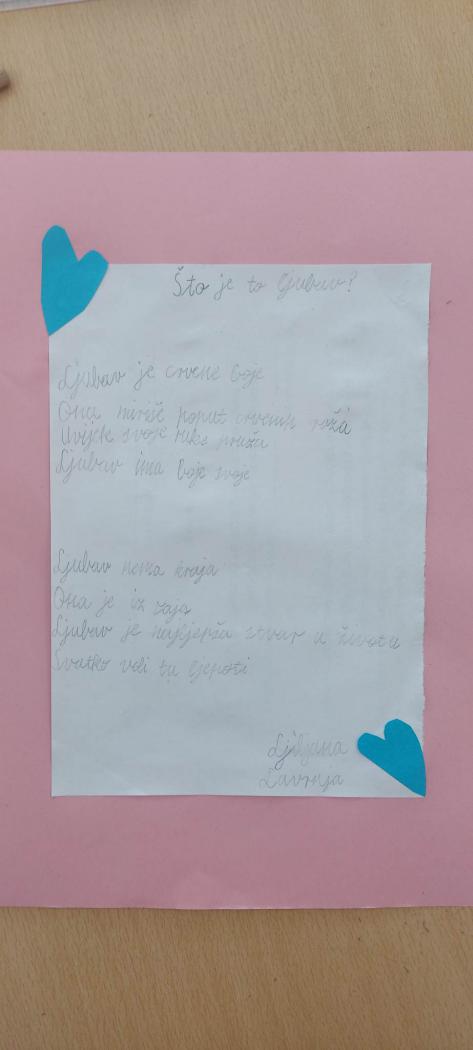 Što je to ljubav?
Ljubav je crvene boje
Ona miriše poput crvenih ruža
Uvijek svoje ruke pruža
Ljubav ima boje svoje
Ljubav nema kraja
Ona je iz raja
Ljubav je najljepša stvar u životu
Svatko voli tu ljepoti
Ljiljana
Lavrnja